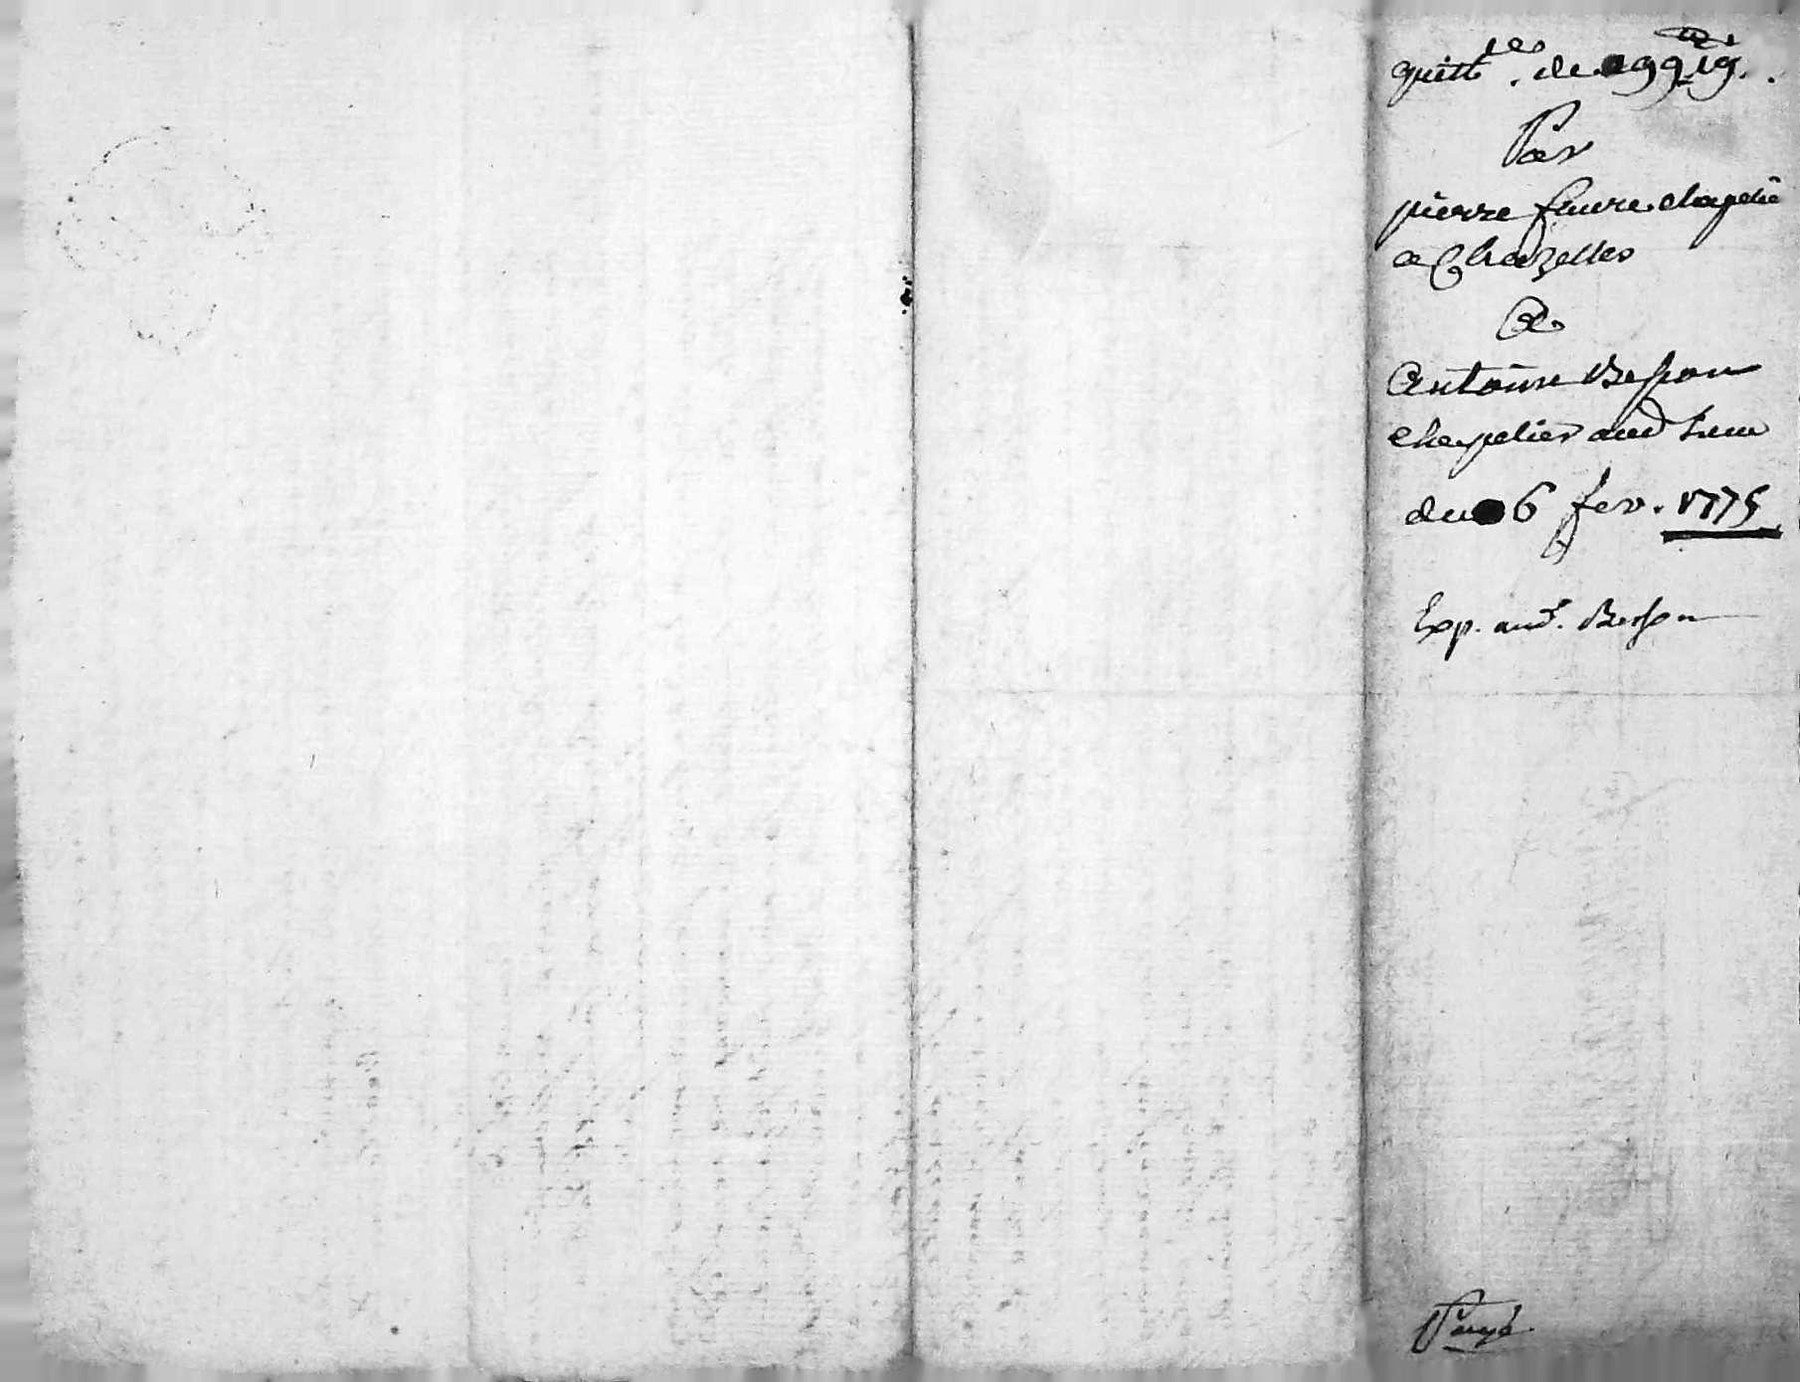 quitt.ce de 99lt 19s.
Par
pierre faure chapelie
a Chazelles
A
Antoine Besson
chapelier aud lieu
du 6 fev. 1775
Exp. aud. Besson
Payé